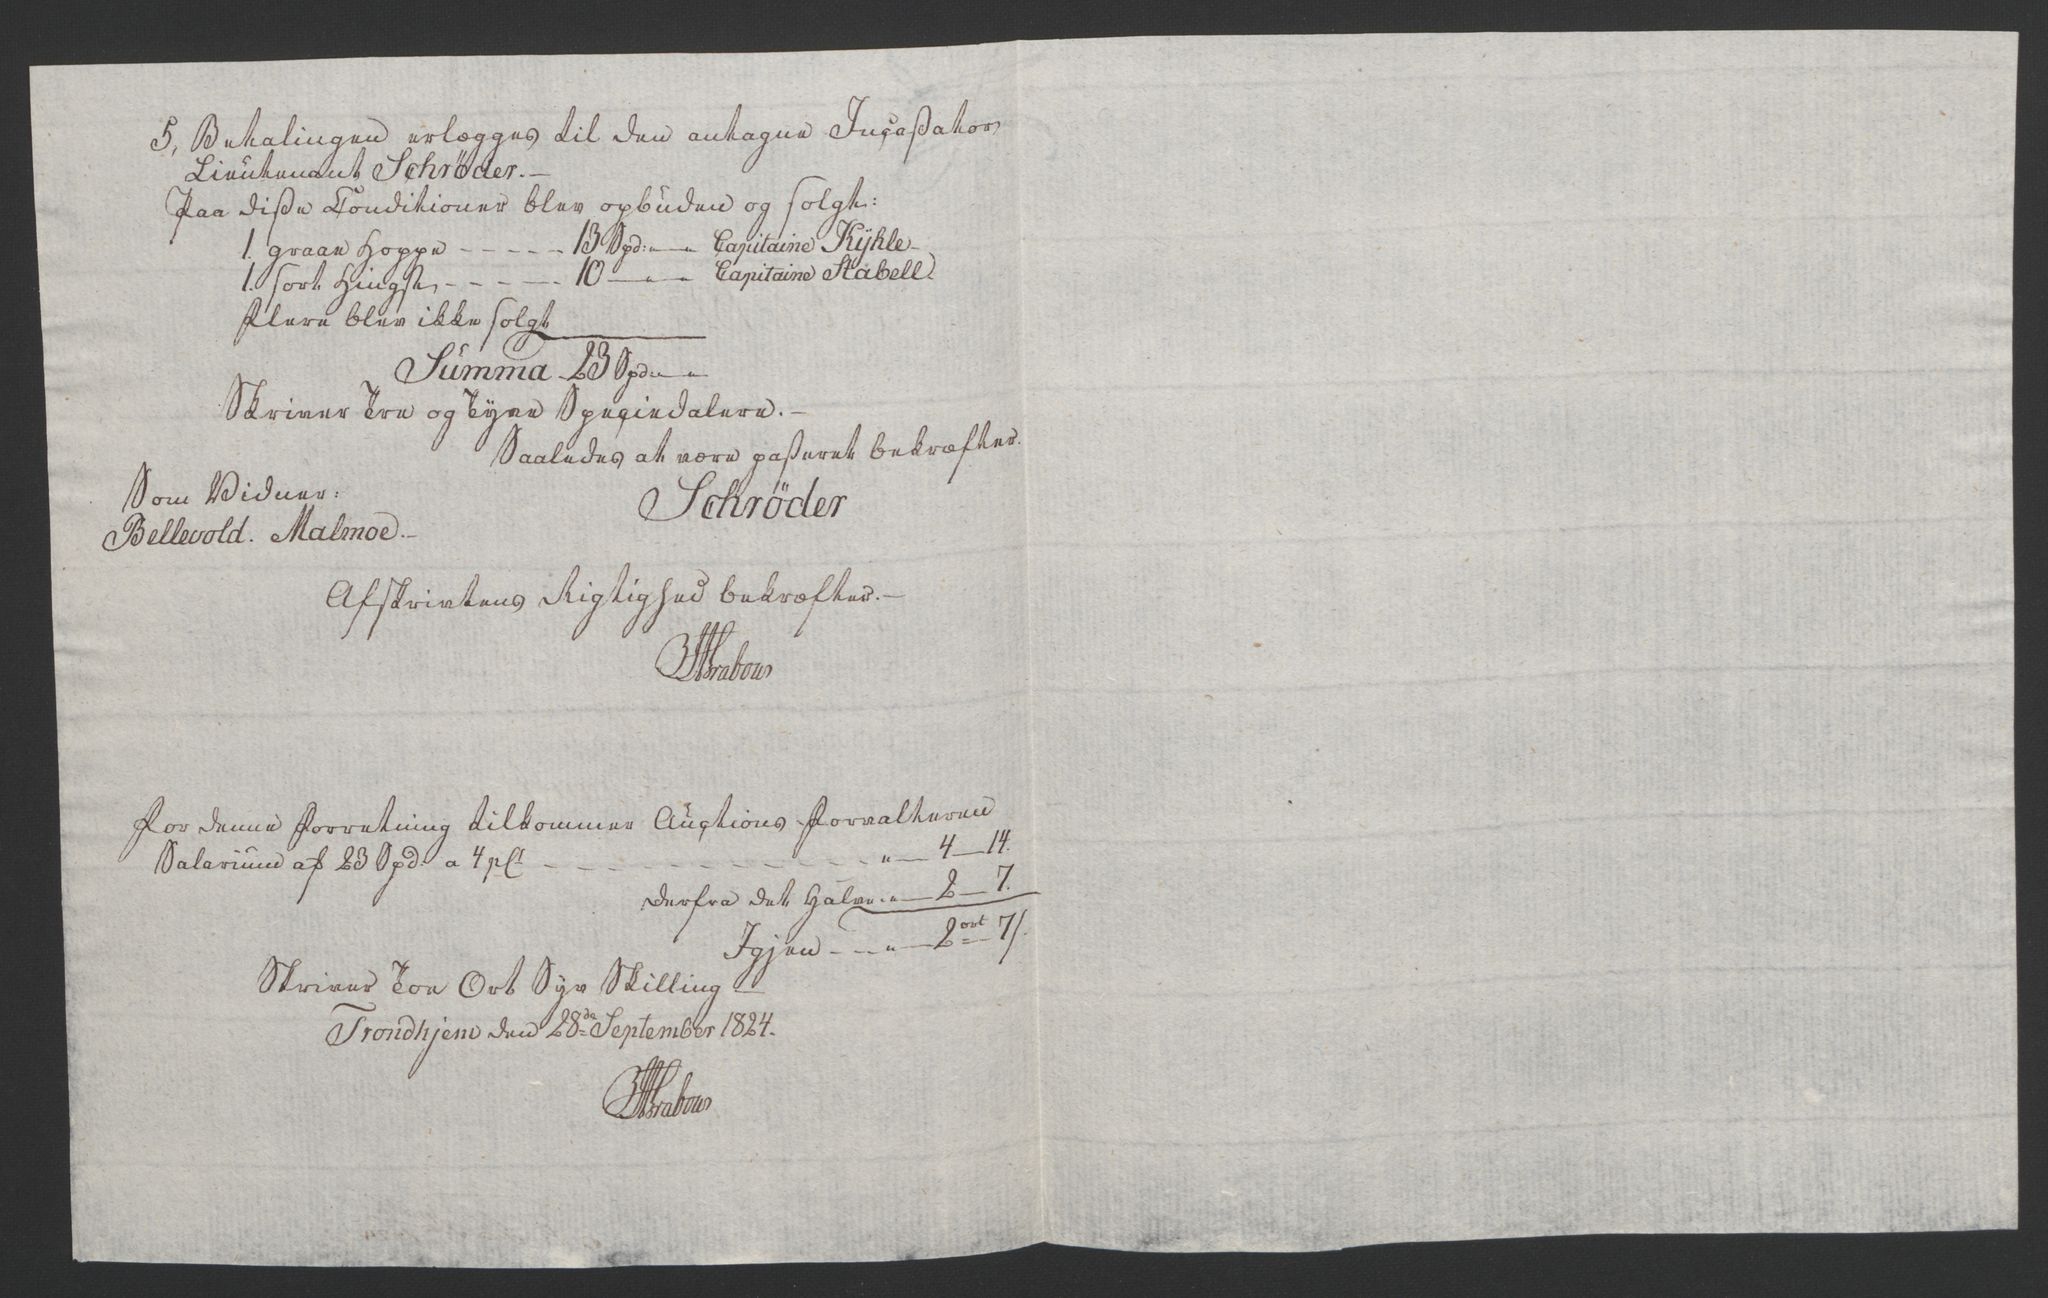 5, Betalingen erlægges til den antagne Inçaßator
Lieutenant Schröder.—
Paa diße Conditioner blev opbuden og solgt:
1. graae Hoppe - - - - - 13 Spd: " — " Capitaine Kÿhle—
1. sort Hingst, - - - - - 10 — " — " Capitaine Stabell.
Flere blev ikke solgt
Summa 23 Spd: " — "
Skriver Tre og Tyve Speciedalere.—
Saaledes at være paßeret bekræfter.
Som Vidner:
Schröder
Bellevold. Malmoe.—
Afskrivtens Rigtighed bekræfter.—
Grabow
For denne Forretning tilkommer Auctions-Forvalteren
Salarium af 23 Spd. a 4 pCt - - - - - - - - - - " — 4 — 14.
derfra det Halve " — 2 — 7.
Igjen - - - " — 2 ort 7 s.
Skriver Toe Ort Syv Skilling —
Trondhjem den 28de September 1824.
Grabow